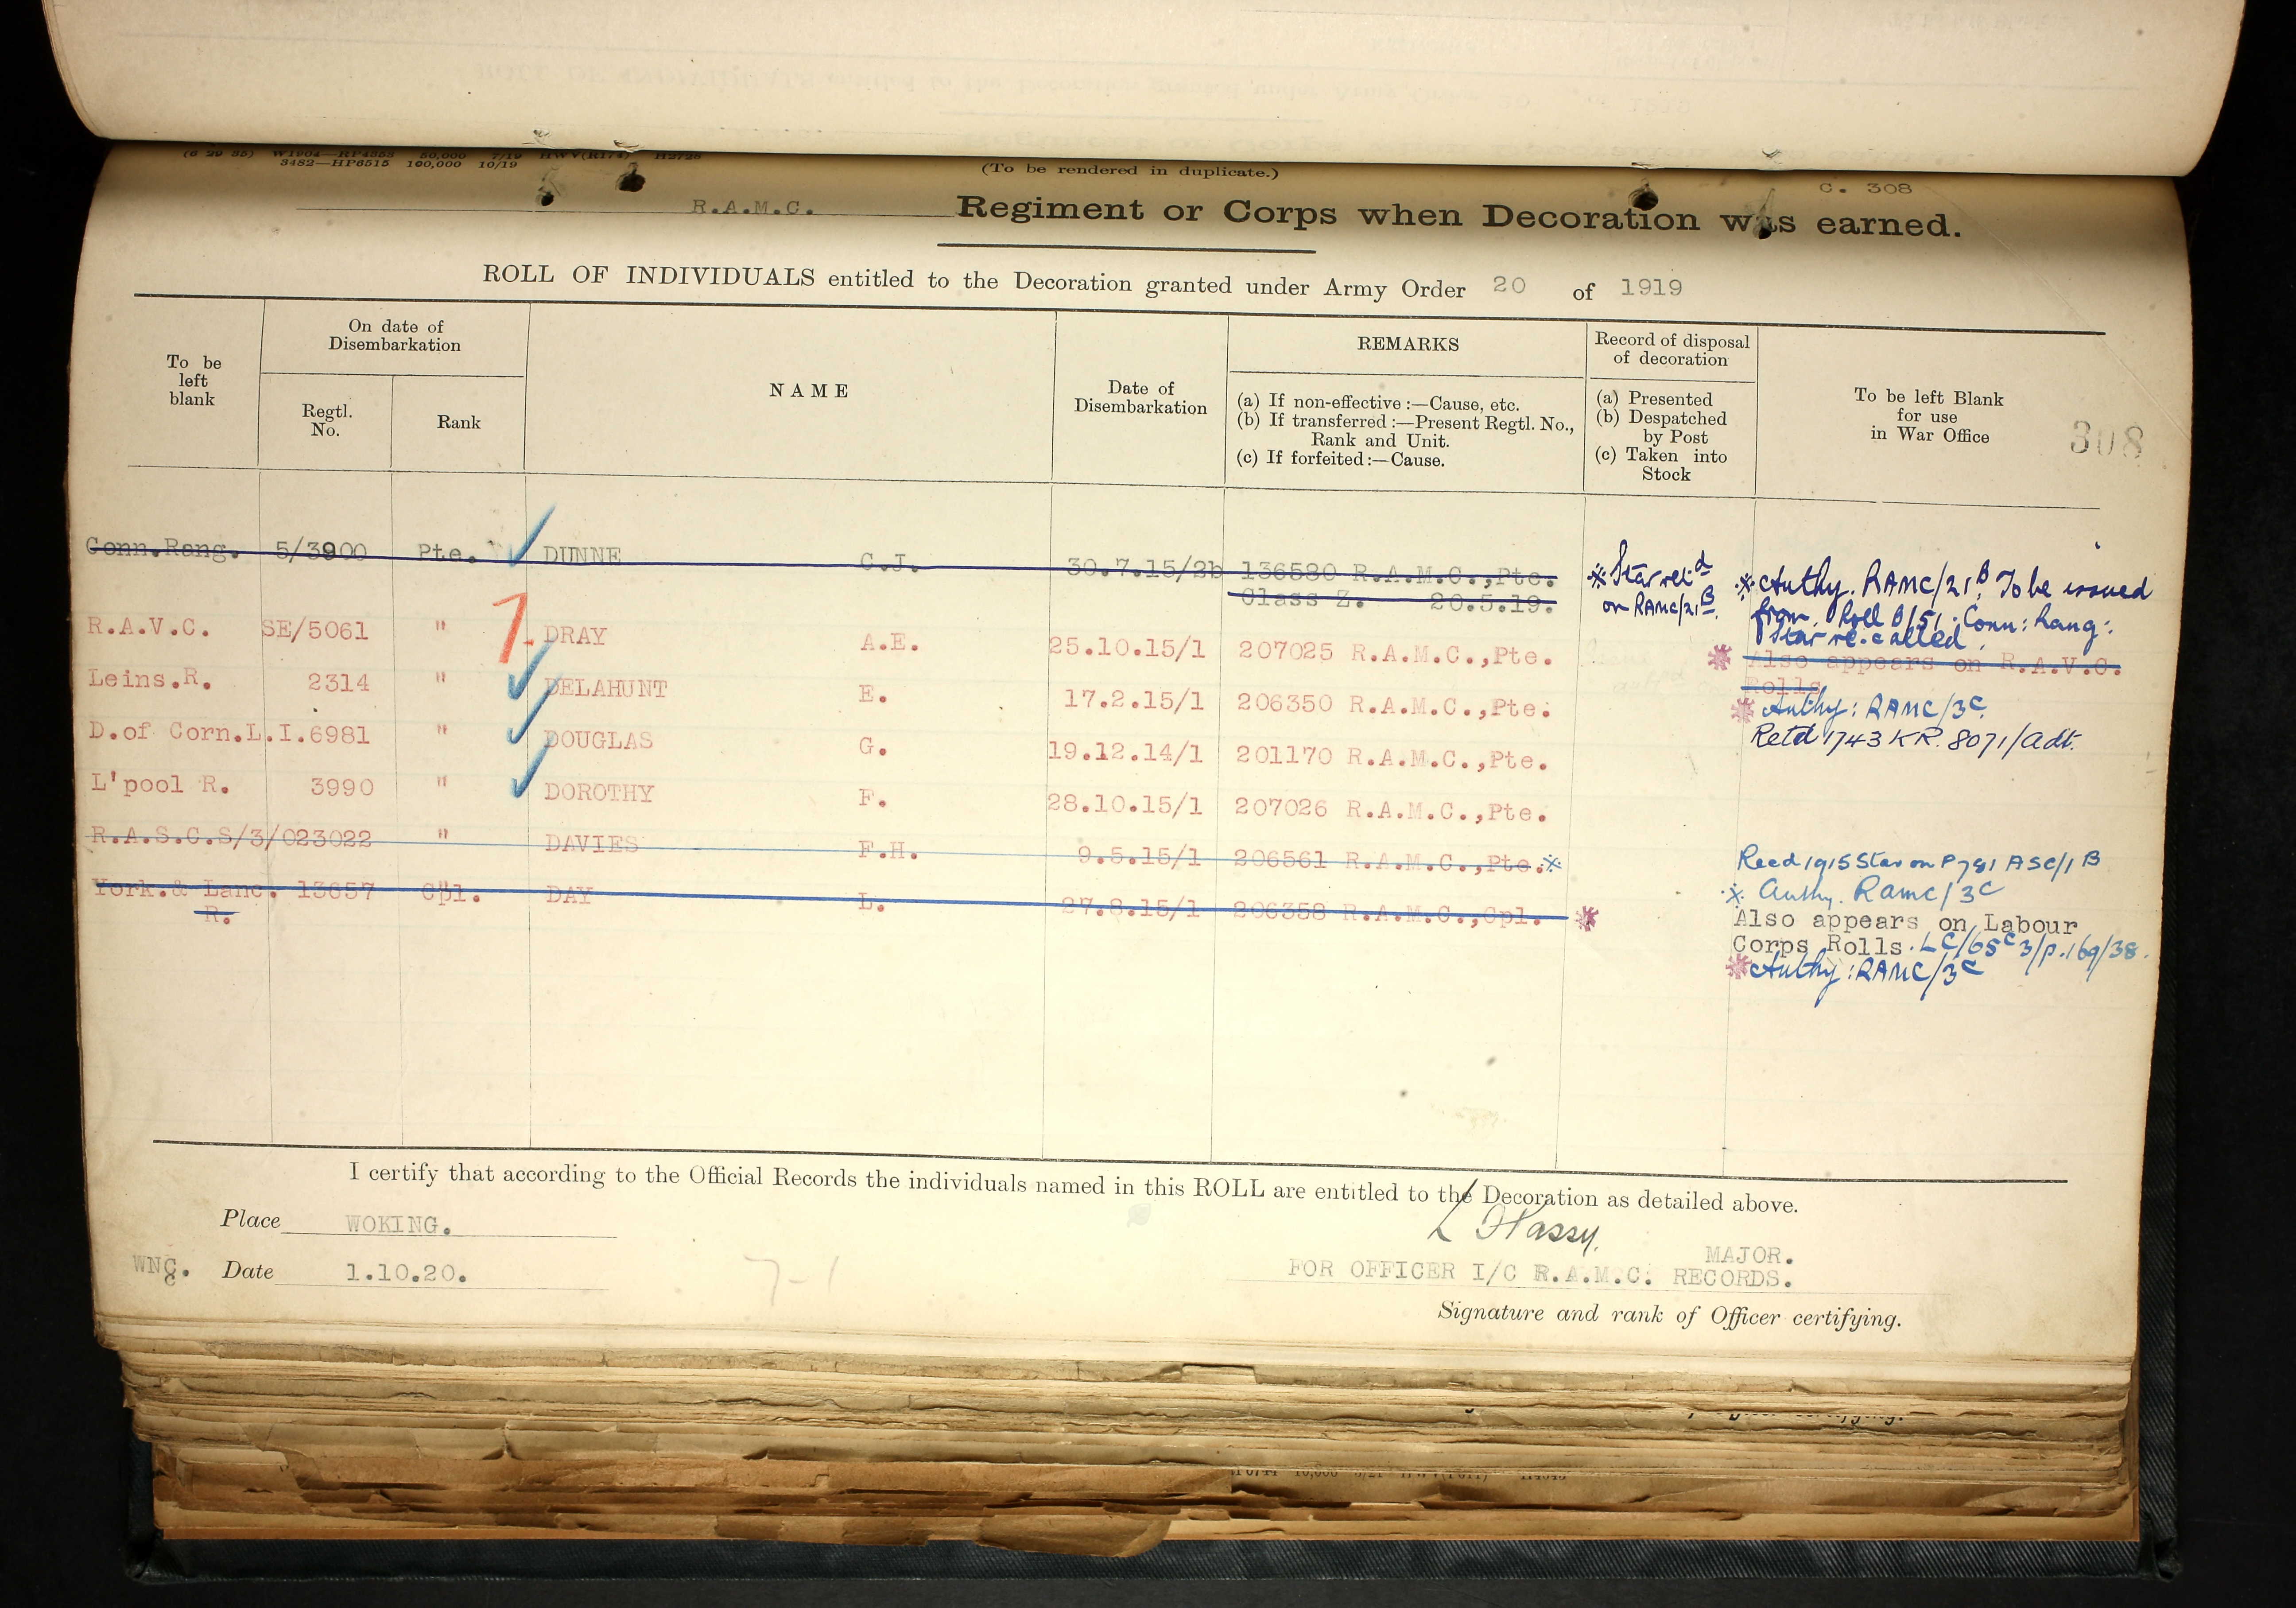 3482—HP6515 100,000 10/19
(To be rendered in duplicate.)
C. 308
R.A.M.C. Regiment or Corps when Decoration was earned.
ROLL OF INDIVIDUALS entitled to the Decoration granted under Army Order 20 of 1919
To be left blank
On date of Disembarkation
Regtl. No.
Rank
NAME
Date of Disembarkation
REMARKS
(a) If non-effective:—Cause, etc.
(b) If transferred:—Present Regtl. No., Rank and Unit.
(c) If forfeited:—Cause.
Record of disposal of decoration
(a) Presented
(b) Despatched by Post
(c) Taken into Stock
To be left Blank for use in War Office
308
Conn.Rang. 5/3900 Pte. DUNNE C.J. 30.7.15/2b 136580 R.A.M.C.,Pte.
Class Z. 20.5.19.
Star retd on RAMC/21B
Authy. RAMC/21B. To be issued
from Roll B/51. Conn: Rang:.
Star re.called.
R.A.V.C. SE/5061 " DRAY A.E. 25.10.15/1 207025 R.A.M.C.,Pte.
Also appears on R.A.V.C.
Rolls
Authy: RAMC/3C.
Retd 1743 KR. 8071/Adt.
Leins.R. 2314 " DELAHUNT E. 17.2.15/1 206350 R.A.M.C.,Pte.
D.of Corn.L.I.6981 " DOUGLAS G. 19.12.14/1 201170 R.A.M.C.,Pte.
L'pool R. 3990 " DOROTHY F. 28.10.15/1 207026 R.A.M.C.,Pte.
R.A.S.C.S/3/023022 " DAVIES F.H. 9.5.15/1 206561 R.A.M.C.,Pte.
Recd 1915 Star on P781 ASC/1B
Authy. RAMC/3C
York.& Lanc. 13657 Cpl. DAY L. 27.8.15/1 206358 R.A.M.C.,Cpl.
R.
Also appears on Labour
Corps Rolls. LC/65C3/p.169/38.
Authy: RAMC/3C
I certify that according to the Official Records the individuals named in this ROLL are entitled to the Decoration as detailed above.
Place WOKING.
MAJOR.
WNC. Date 1.10.20.
7-1
FOR OFFICER I/C R.A.M.C. RECORDS.
Signature and rank of Officer certifying.